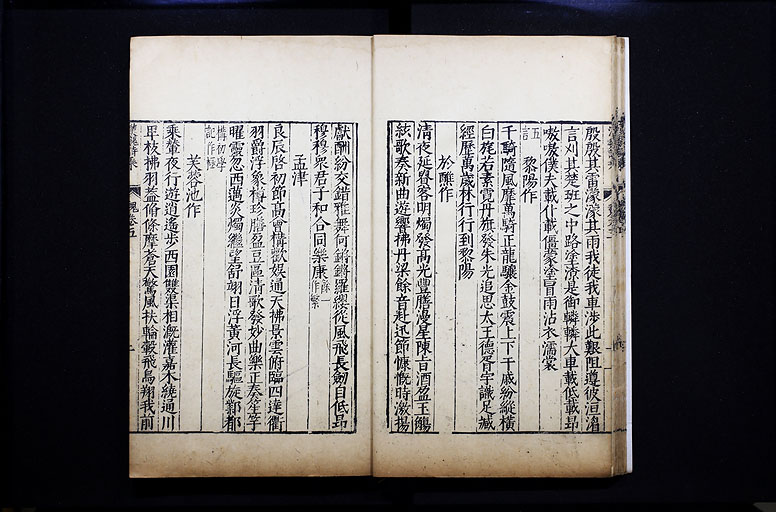 殷殷其雷濛濛其雨我徒我車涉此艱阻遵彼洹湄
言刈其楚班之中路塗潦是御轔轔大車載低載昂
嗷嗷僕夫載仆載僵蒙塗冒雨沾衣濡裳
黎陽作
五言
千騎隨風靡萬騎正龍驤金鼓震上下干戚紛縱橫
白旄若素霓丹旗發朱光追思太王德胥宇識足臧
經歷萬歲林行行到黎陽
於譙作
清夜延貴客明燭發高光豐膳漫星陳旨酒盈玉觴
絃歌奏新曲遊響拂丹梁餘音赴迅節慷慨時激揚
獻酬紛交錯雅舞何鏘鏘羅纓從風飛長劒自低昂
穆穆衆君子和合同樂康
孟津
良辰啓初節高會構歡娛通天拂景雲俯臨四達衢
羽爵浮象樽珍膳盈豆區清歌發妙曲樂正奏笙竽
曜靈忽西邁炎燭繼望舒翊日浮黃河長驅旋鄴都
芙蓉池作
乘輦夜行遊逍遙步西園雙渠相漑灌嘉木繞通川
卑枝拂羽蓋脩條摩蒼天驚風扶輪轂飛鳥翔我前